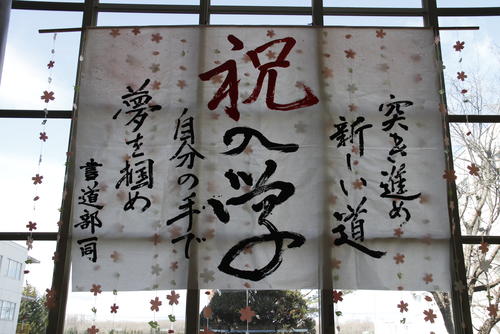 突き進め
新しい道
祝入学
自分の手で
夢を掴め
書道部一同